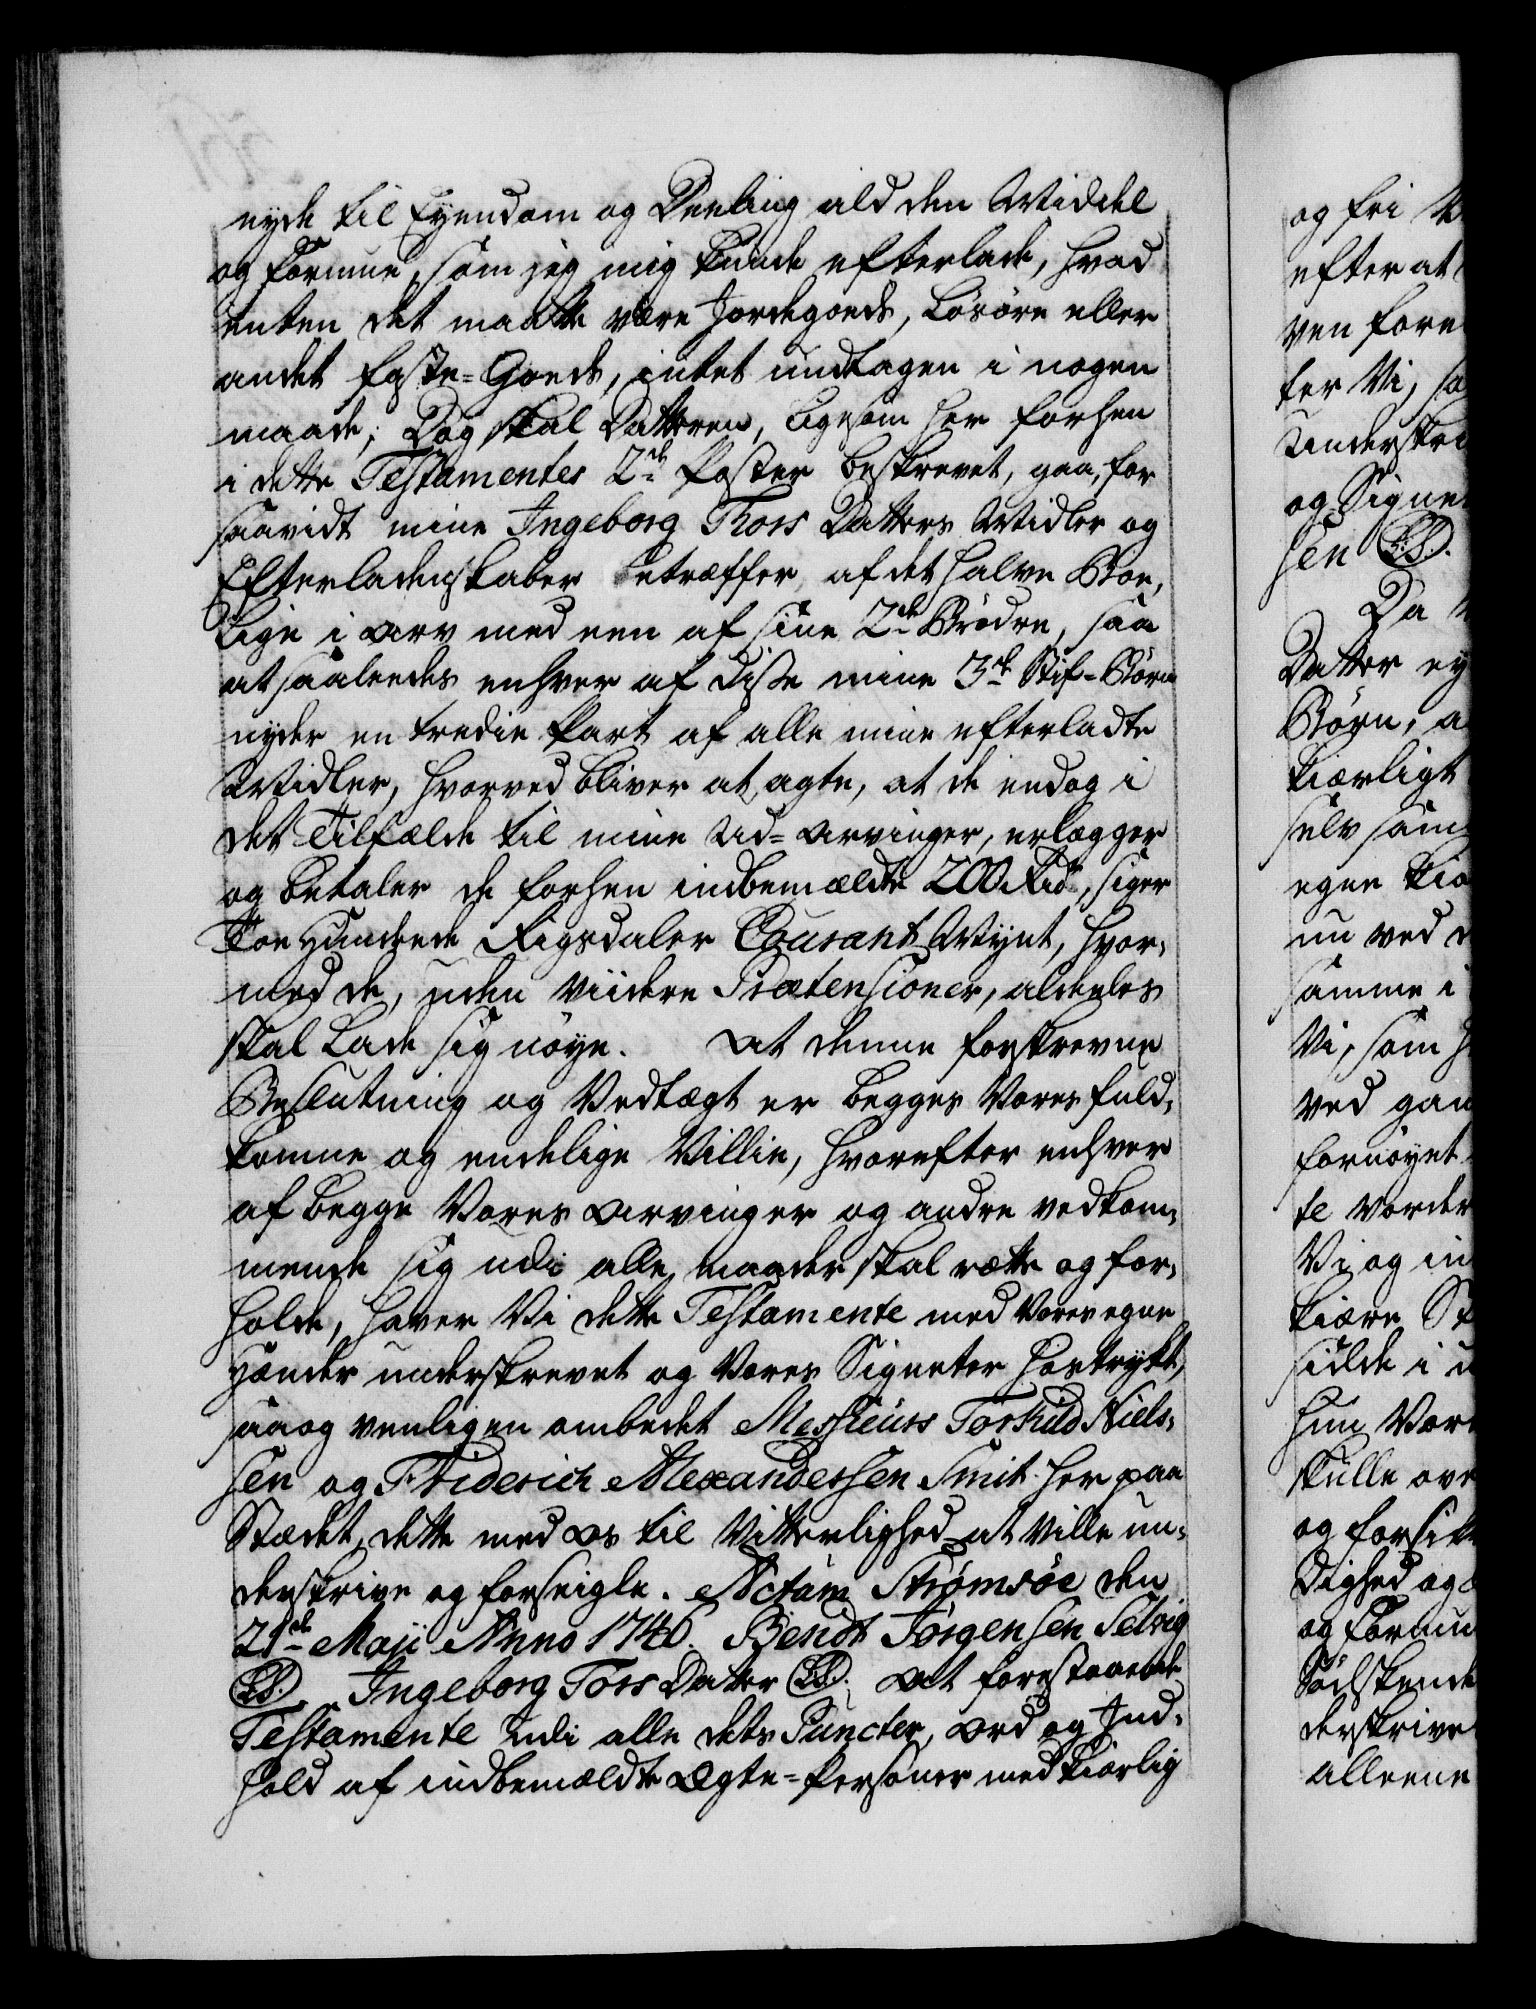 nyde til Eyendom og Deeling ald den Middel
og Formue, som jeg mig kunde efterlade, hvad
enten det maatte være Jordegoeds, Løsøre eller
andet faste-Goeds, intet undtagen i nogen
maade; Dog skal Datteren, ligesom her forhen
i dette Testamentes 2de Poster beskrevet, gaa, for
saavidt mine Ingeborg Thors Datters Midler og
Efterladenskaber betræffer, af det halve Boe,
lige i Arv med een af sine 2de Brødre, saa
at saaleedes enhver af disse mine 3de Stif-Børn
nyder en tredie Part af alle mine efterladte
Midler, hvorved bliver at agte, at de endog i
det Tilfælde til mine Ud-Arvinger, erlægger
og betaler de forhen indbemældte 200 Rdr, siger
Toe Hundrede Rigsdaler Courant Mynt, hvor-
med de, uden viidere Prætensioner, aldeeles
skal lade sig nøye. At denne forskrevne
Beslutning og Vedtægt er begges Vores fuld-
komne og endelige Villie, hvorefter enhver
af begge Vores Arvinger og andre vedkom-
mende sig udi alle maader skal rætte og for-
holde, haver Vi dette Testamente med Vores egne
Hænder underskrevet og Vores Signeter hostrykt,
saa og venligen ombedet Messieurs Torkild Niels-
sen og Friderich Alexandersen Smit her paa
Stædet, dette med os til Vitterlighed at ville un-
derskrive og forseigle. Actum Strømsøe den
21de Maji Anno 1746. Bendt Jørgensen Selvig
(L.S.) Ingeborg Tors Datter (L.S.). At forestaaende
Testamente udi alle dets Puncter, Ord og Ind-
hold af indbemældte Ægte-Personer med kiærlig
og fri
efter at
ven fore
ter Vi, sa
Underskri
og Signe
sen (L.S.).
Da
Datter ey
Børn, a
kiærligt
selv sam
egne kiæ
nu ved
samme i
Vi, som
ved gan
fornøyet
te vorder
Vi og in
kiære St
silde i
hun Vor
skulle ove
og forsik
dighed og
og Formu
Sødskende
derskrive
alleene